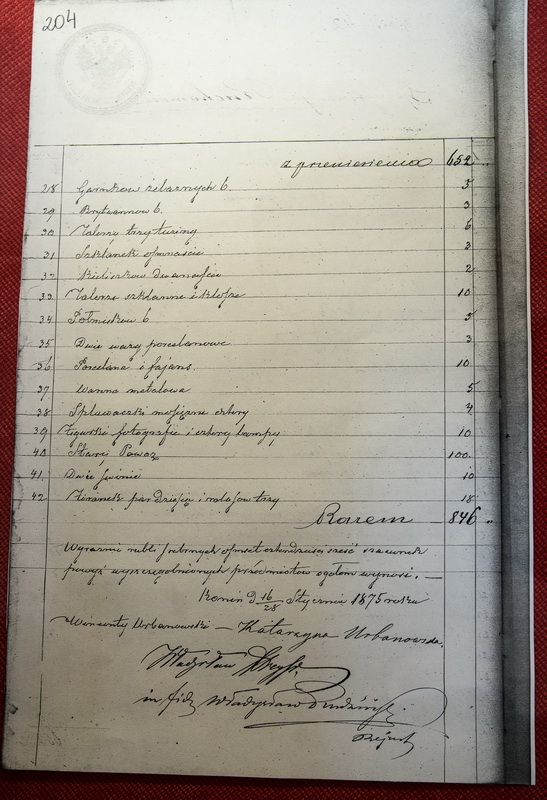 204
z przeniesienia 652 "
28 Garnków żelaznych 6. 5
29 Brytwannow 6. 3
30 Talerzy trzy tuziny 6
31 Szklanek ośmnaście 3
32 Kieliszkow dwanaście 2
33 Talerze szklanne i klosze 10
34 Półmisków 6 5
35 Dwie wazy porcelanowe 3
36 Porcelana i fajans. 10
37 Wanna metalowa 5
38 Spluwaczki mosiężne cztery 4
39 Zegarki fotografie i cztery lampy 10
40 Stary Powoz 100.
41. Dwie świnie 10
42 par dziesięć i trzy 18
Razem — 846 "
Wyraźnie rubli srebrnych ośmset czterdzieści sześć szacunek
powyż wyszczególnionych przedmiotów ogółem wynosi. —
Konin d 16/28 Stycznia 1875 roku
Wincenty Urbanowski — Katarzyna Urbanowska.
Władysław
in fidem Władysław
Rejent